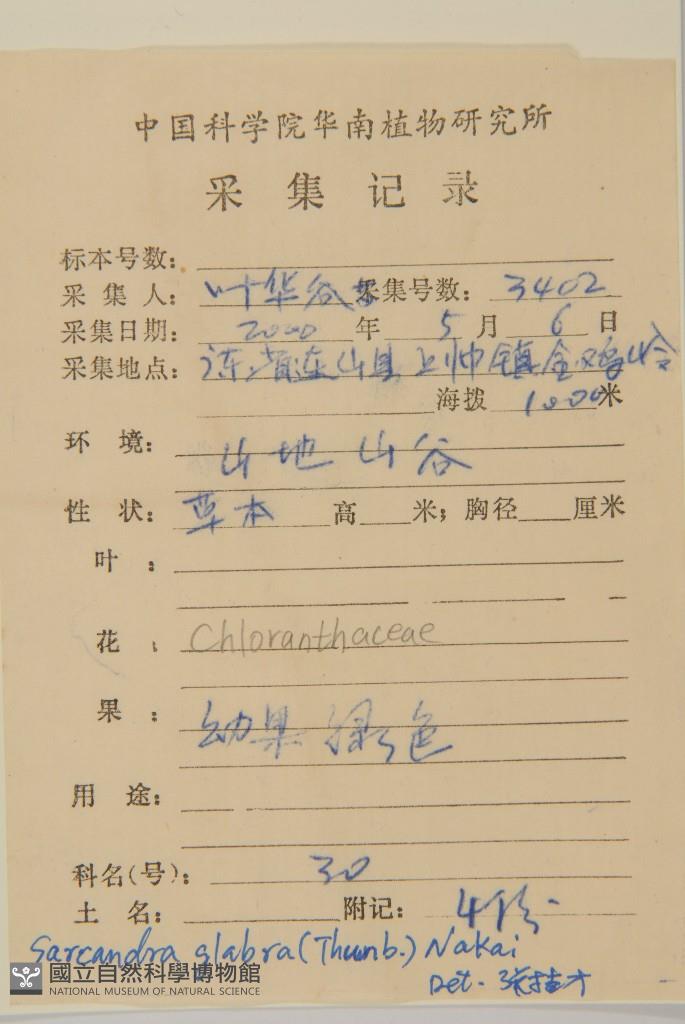 中国科学院华南植物研究所
采集记录
标本号数:
采集人: 叶华谷 采集号数: 3402
采集日期: 2000 年 5 月 6 日
采集地点: 广东省连山县上帅镇金鸡岭
海拨 1000 米
环境: 山地山谷
性状: 草本 高 米; 胸径 厘米
叶:
花: Chloranthaceae
果: 幼果绿色
用途:
科名(号): 30
土名: 附记: 4份
Sarcandra glabra (Thunb.) Nakai
國立自然科學博物館
NATIONAL MUSEUM OF NATURAL SCIENCE
Det. 张桂才